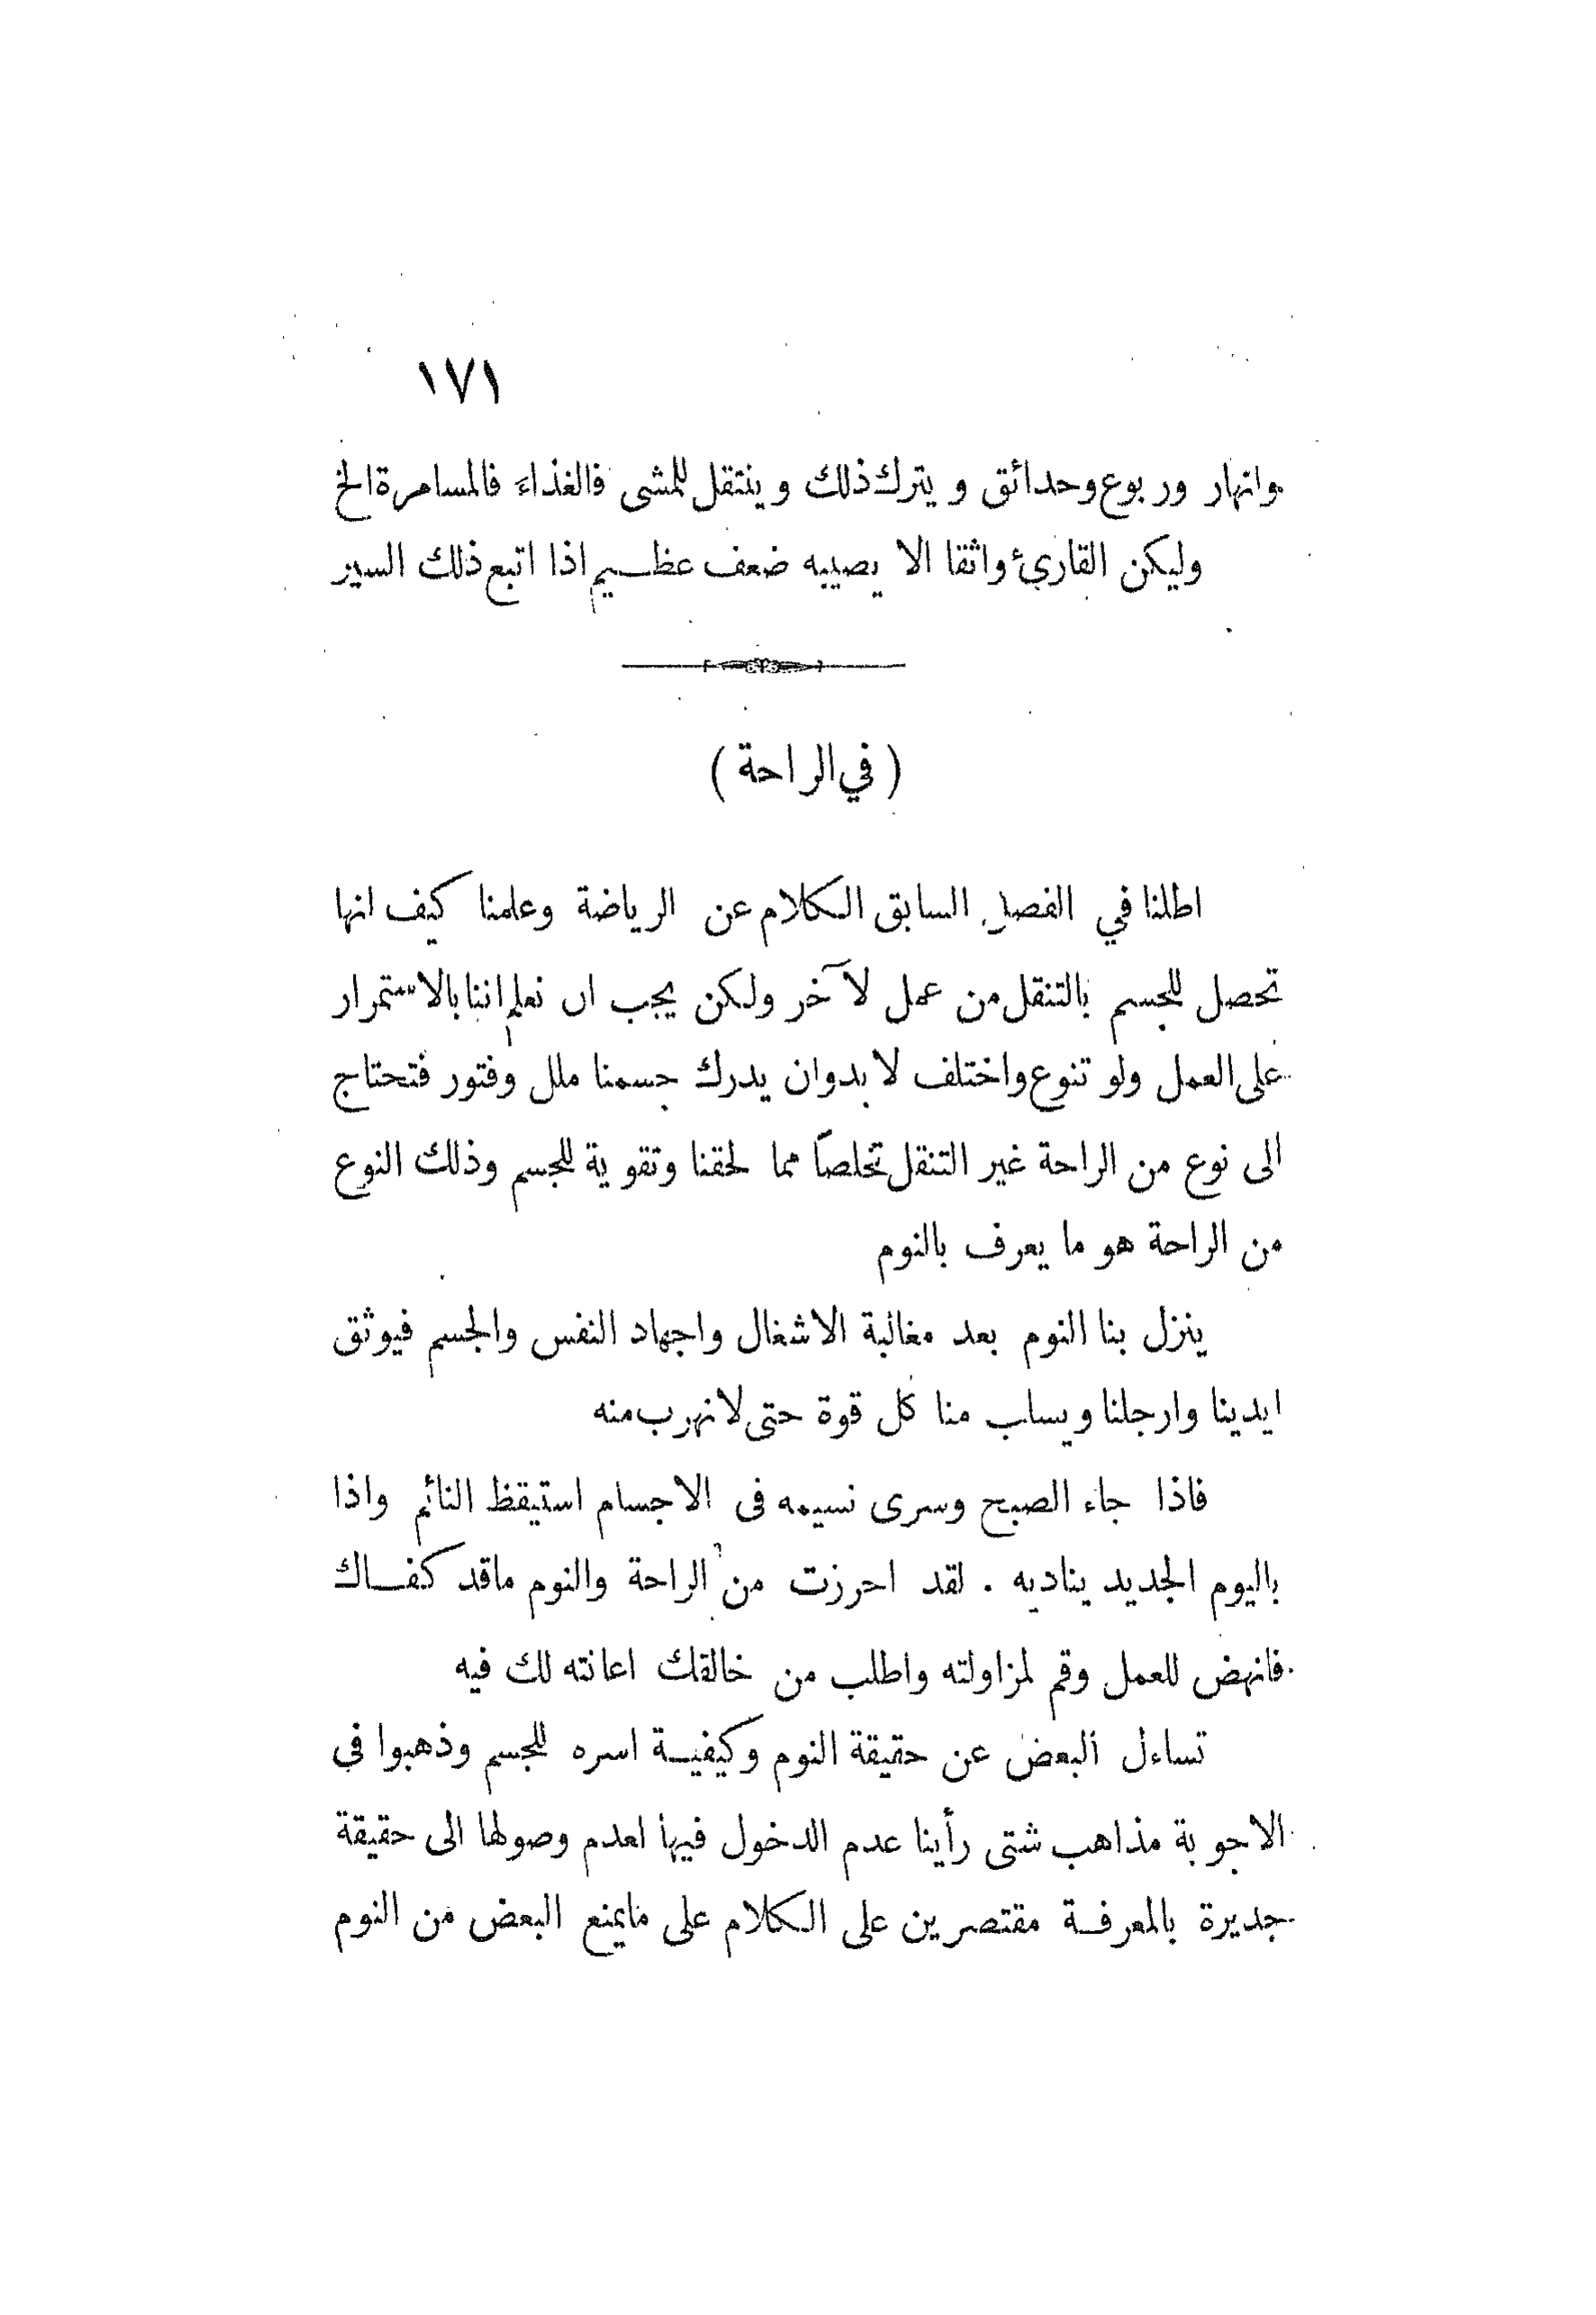 ١٧١
وانهار وربوع وحدائق ويترك ذلك وينتقل للمشى فالغذاء فالمسامرة الخ
وليكن القارئ واثقا الا يصيبه ضعف عظيم اذا اتبع ذلك السير
( في الراحة )
اطلنا في الفصل السابق الكلام عن الرياضة وعلمنا كيف انها
تحصل للجسم بالتنقل من عمل لآخر ولكن يجب ان نعلم اننا بالاستمرار
على العمل ولو تنوع واختلف لا بد وان يدرك جسمنا ملل وفتور فتحتاج
الى نوع من الراحة غير التنقل تخلصاً مما لحقنا وتقوية للجسم وذلك النوع
من الراحة هو ما يعرف بالنوم
ينزل بنا النوم بعد مغالبة الاشغال واجهاد النفس والجسم فيوثق
ايدينا وارجلنا ويساب منا كل قوة حتى لا نهرب منه
فاذا جاء الصبح وسرى نسيمه فى الاجسام استيقظ النائم واذا
باليوم الجديد يناديه . لقد احرزت من الراحة والنوم ماقد كفاك
فانهض للعمل وقم لمزاولته واطلب من خالقك اعانته لك فيه
تساءل البعض عن حقيقة النوم وكيفية اسره للجسم وذهبوا فى
الاجوبة مذاهب شتى رأينا عدم الدخول فيها لعدم وصولها الى حقيقة
جديرة بالمعرفة مقتصرين على الكلام على مايمنع البعض من النوم